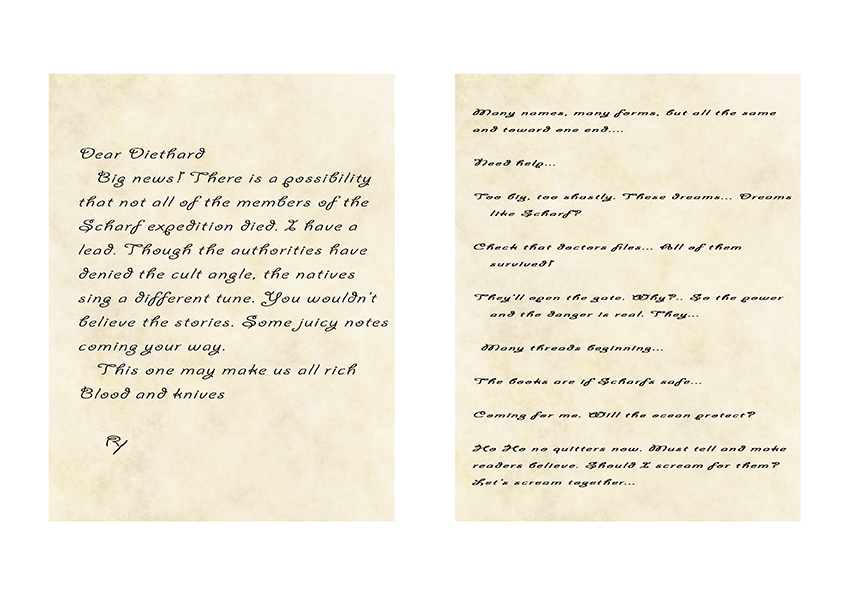 Dear Diethard
Big news! There is a possibility
that not all of the members of the
Scharf expedition died. I have a
lead. Though the authorities have
denied the cult angle, the natives
sing a different tune. You wouldn't
believe the stories. Some juicy notes
coming your way.
This one may make us all rich
Blood and knives
Ry
Many names, many forms, but all the same
and toward one end....
Need help...
Too big, too shastly. These dreams... Dreams
like Scharf?
Check that doctors files... All of them
survived!
They'll open the gate. Why?.. So the power
and the danger is real. They...
Many threads beginning...
The books are if Scharfs safe...
Coming for me. Will the ocean protect?
Ho Ho no quitters now. Must tell and make
readers believe. Should I scream for them?
Let's scream together...